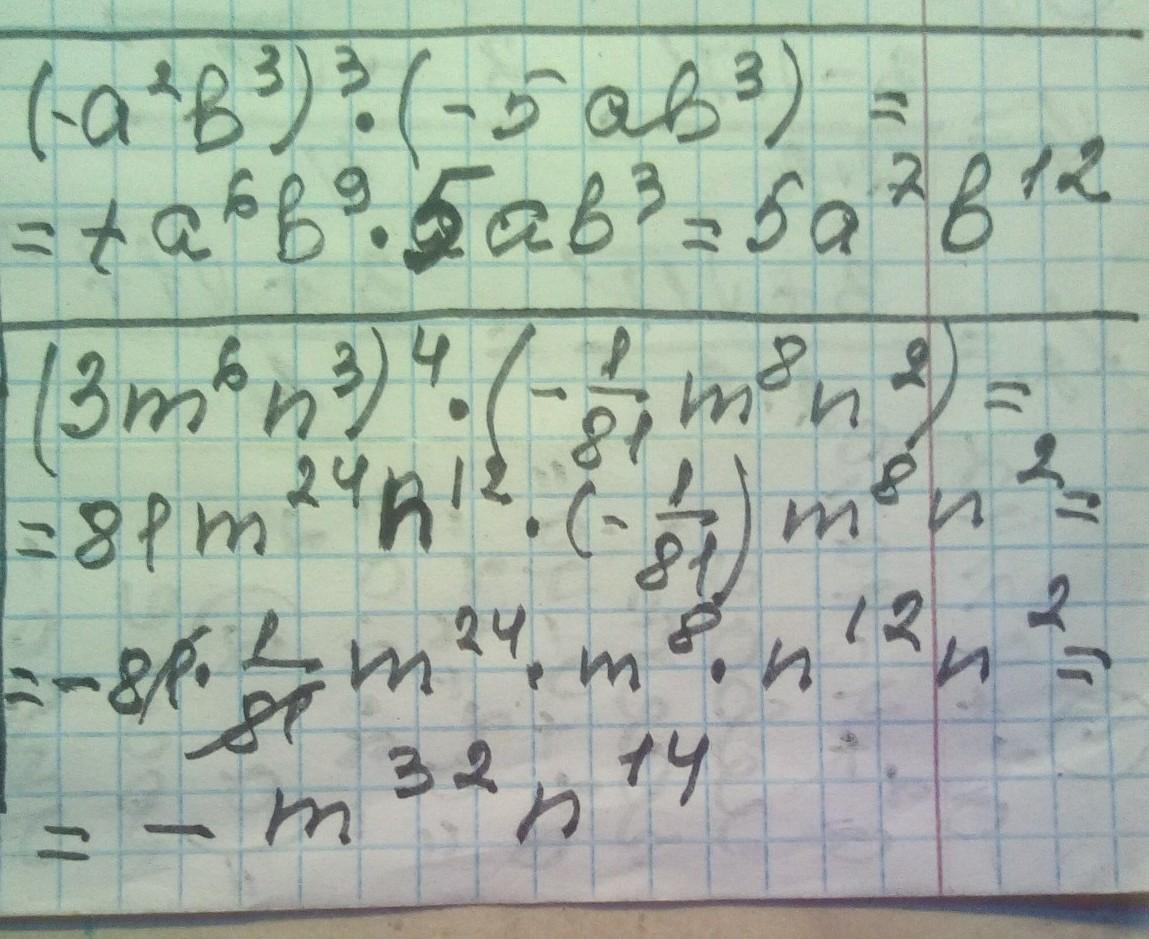 (-a²b³)³·(-5ab³) =
= +a⁶b⁹·5ab³ = 5a⁷b¹²
(3m⁶n³)⁴·(-1/81 m⁸n²) =
= 81m²⁴n¹²·(-1/81)m⁸n² =
= -81·1/81 m²⁴·m⁸·n¹²n² =
= - m³²n¹⁴